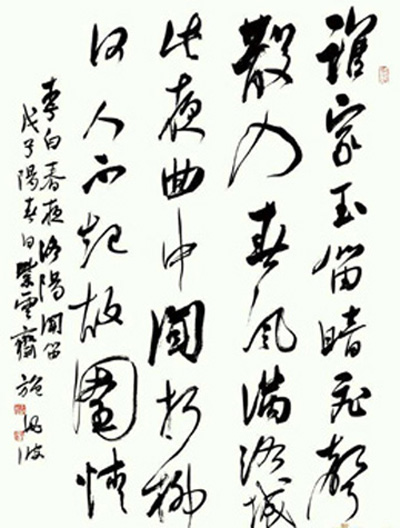 誰家玉笛暗飛聲
散入春風滿洛城
此夜曲中聞折柳
何人不起故園情
李白春夜洛陽聞笛
戊子陽春白紫雲齋 施